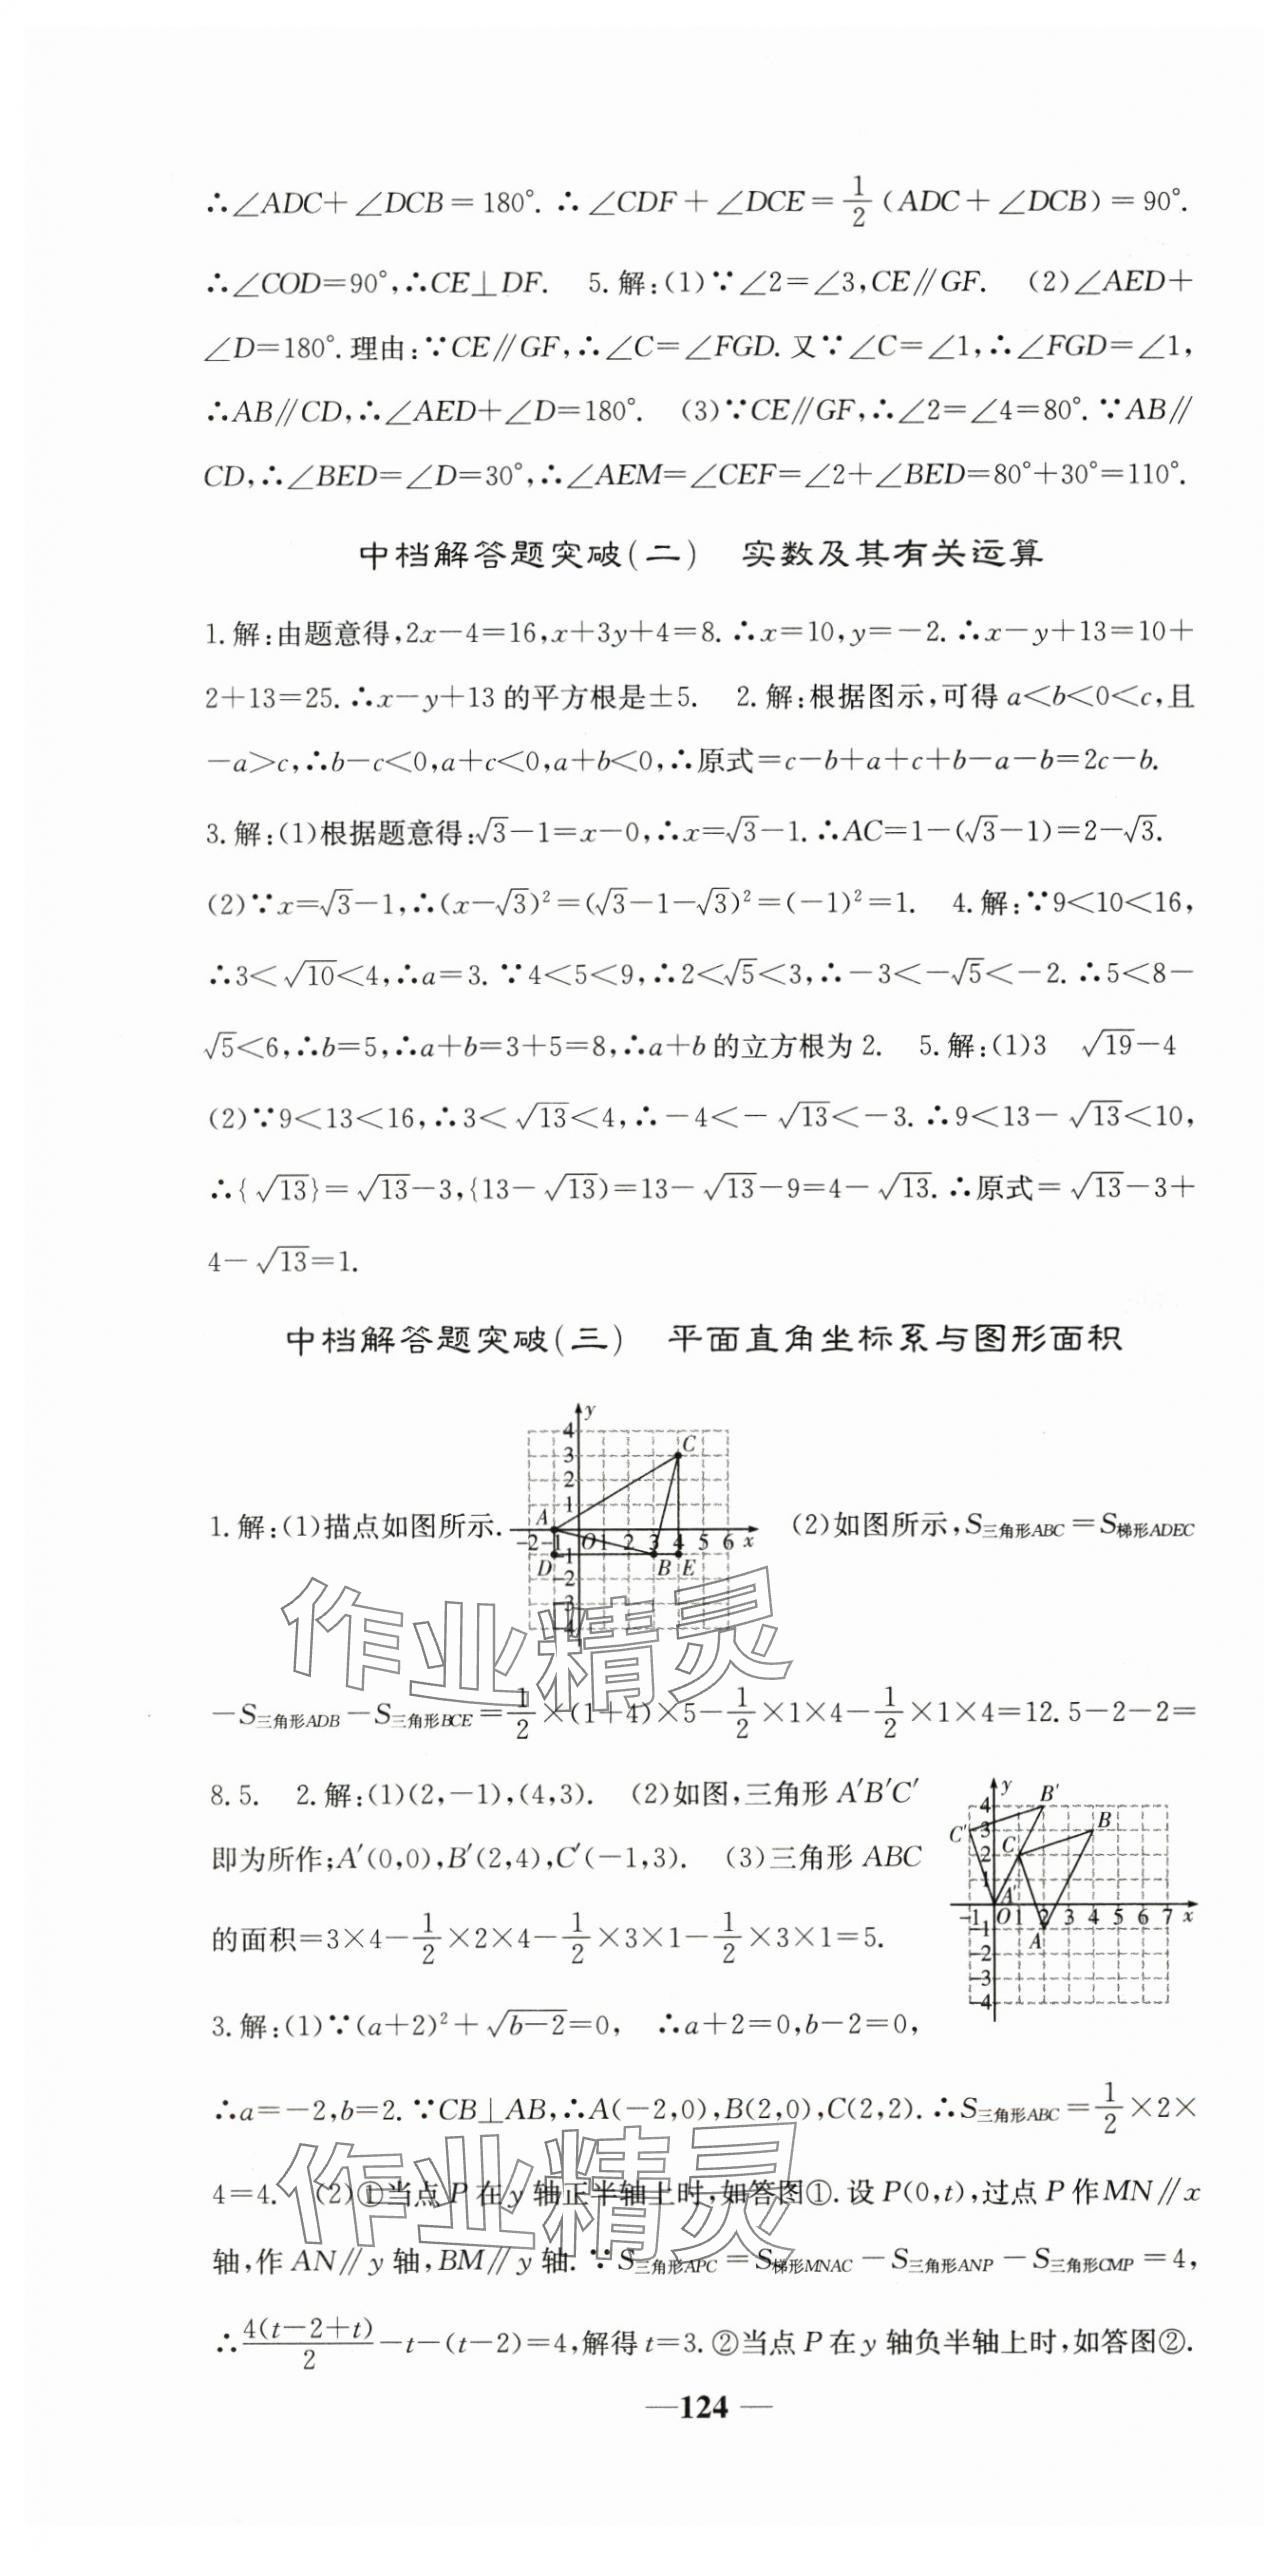 ∴∠ADC+∠DCB=180°.∴∠CDF+∠DCE=1/2(ADC+∠DCB)=90°.
∴∠COD=90°,∴CE⊥DF. 5.解:(1)∵∠2=∠3,CE∥GF. (2)∠AED+
∠D=180°.理由:∵CE∥GF,∴∠C=∠FGD.又∵∠C=∠1,∴∠FGD=∠1,
∴AB∥CD,∴∠AED+∠D=180°. (3)∵CE∥GF,∴∠2=∠4=80°.∵AB∥
CD,∴∠BED=∠D=30°,∴∠AEM=∠CEF=∠2+∠BED=80°+30°=110°.
中档解答题突破(二) 实数及其有关运算
1.解:由题意得,2x-4=16,x+3y+4=8.∴x=10,y=-2.∴x-y+13=10+
2+13=25.∴x-y+13的平方根是±5. 2.解:根据图示,可得a<b<0<c,且
-a>c,∴b-c<0,a+c<0,a+b<0,∴原式=c-b+a+c+b-a-b=2c-b.
3.解:(1)根据题意得:√3-1=x-0,∴x=√3-1.∴AC=1-(√3-1)=2-√3.
(2)∵x=√3-1,∴(x-√3)²=(√3-1-√3)²=(-1)²=1. 4.解:∵9<10<16,
∴3<√10<4,∴a=3.∵4<5<9,∴2<√5<3,∴-3<-√5<-2.∴5<8-
√5<6,∴b=5,∴a+b=3+5=8,∴a+b的立方根为2. 5.解:(1)3 √19-4
(2)∵9<13<16,∴3<√13<4,∴-4<-√13<-3.∴9<13-√13<10,
∴{√13}=√13-3,{13-√13)=13-√13-9=4-√13.∴原式=√13-3+
4-√13=1.
中档解答题突破(三) 平面直角坐标系与图形面积
y
4
3 C
2
1
1.解:(1)描点如图所示. A (2)如图所示,S三角形ABC=S梯形ADEC
-2 -1 O 1 2 3 4 5 6 x
D -1 B E
-2
-3
-4
作业精灵
-S三角形ADB-S三角形BCE=1/2×(1+4)×5-1/2×1×4-1/2×1×4=12.5-2-2=
8.5. 2.解:(1)(2,-1),(4,3). (2)如图,三角形A′B′C′
即为所作;A′(0,0),B′(2,4),C′(-1,3). (3)三角形ABC
的面积=3×4-1/2×2×4-1/2×3×1-1/2×3×1=5.
y
4 B′
C′ 3 B
C 2
1
A′
-1 O 1 2 3 4 5 6 7 x
-1 A
-2
-3
-4
3.解:(1)∵(a+2)²+√(b-2)=0, ∴a+2=0,b-2=0,
∴a=-2,b=2.∵CB⊥AB,∴A(-2,0),B(2,0),C(2,2).∴S三角形ABC=1/2×2×
4=4. (2)①当点P在y轴正半轴上时,如答图①.设P(0,t),过点P作MN∥x
作业精灵
轴,作AN∥y轴,BM∥y轴.∵S三角形APC=S梯形MNAC-S三角形ANP-S三角形CMP=4,
∴4(t-2+t)/2-t-(t-2)=4,解得t=3.②当点P在y轴负半轴上时,如答图②.
—124—